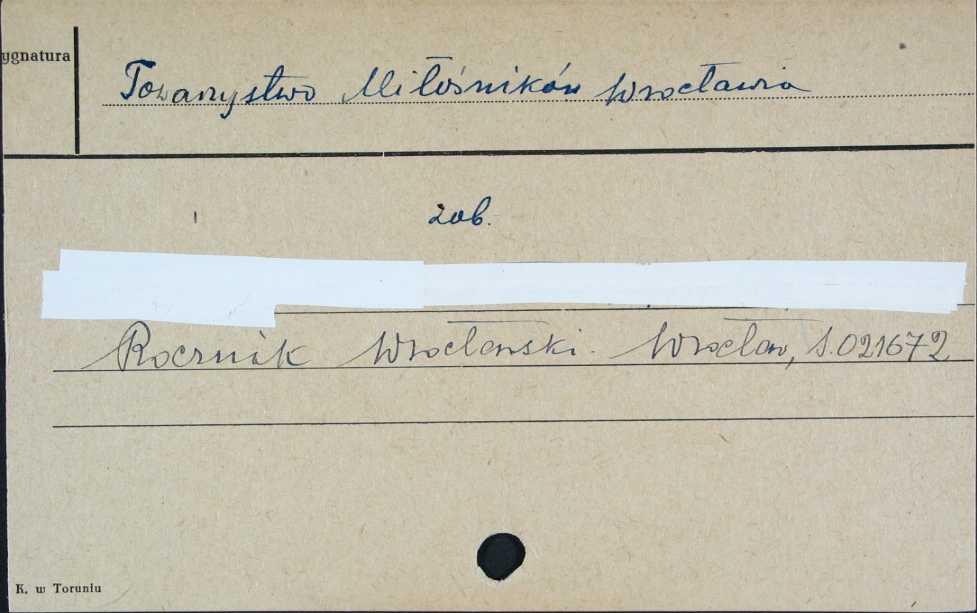 ygnatura
Towarzystwo Miłośników Wrocławia
zob.
Rocznik Wrocławski. Wrocław, S.021672
K. w Toruniu